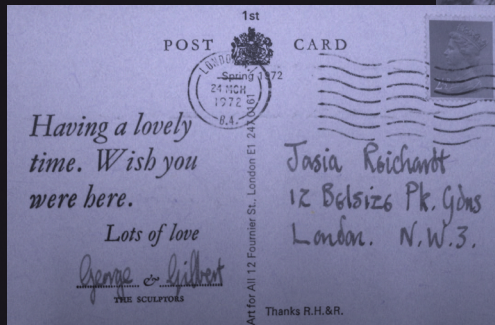 1st
POST CARD
LONDON
Spring 1972
24 MCH
1972
Having a lovely
time. Wish you
were here.
Lots of love
George & Gilbert
THE SCULPTORS
Art for All 12 Fournier St. London E1 247 0161
Jasia Reichardt
12 Belsize Pk. Gdns
London. N.W.3.
Thanks R.H.&R.